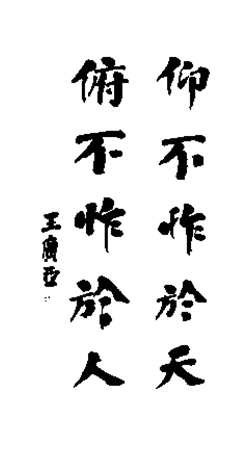 仰不怍於天
俯不怍於人
王廣亞